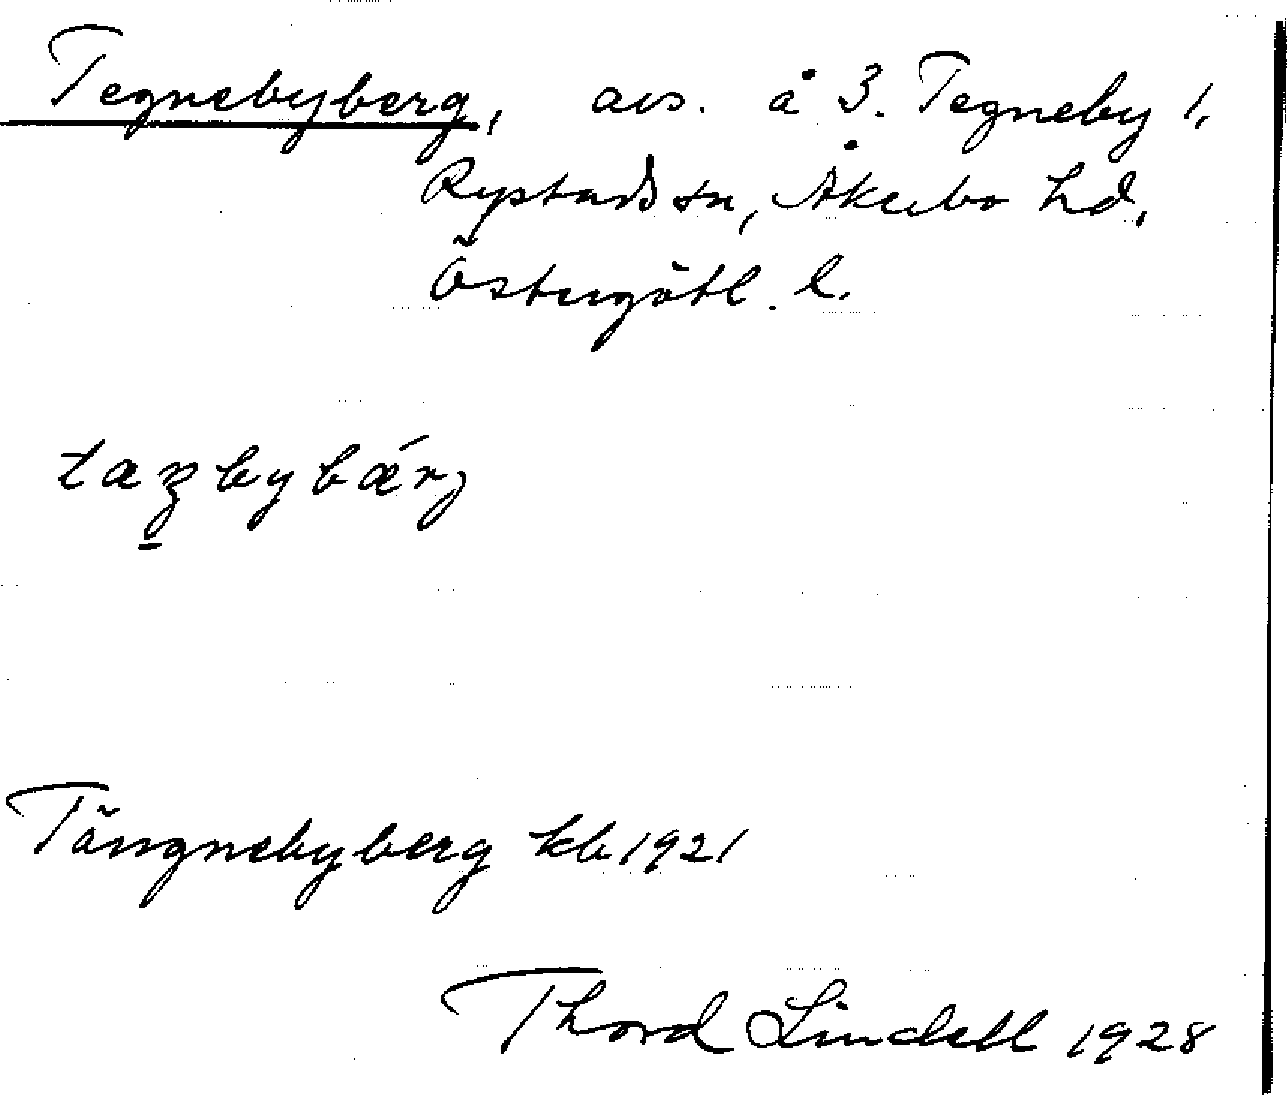 Tegnebyberg, avs. å 3. Tegneby 1,
Rystads sn, Åkerbo hd,
Östergötl. l.
Tängnebyberg kb 1921
Thord Lindell 1928